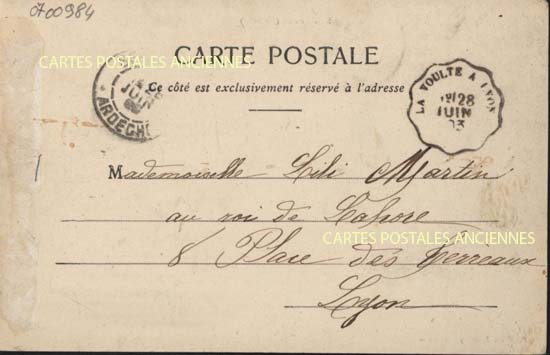 0700984
CARTE POSTALE
CARTES POSTALES ANCIENNES
Ce côté est exclusivement réservé à l'adresse
JUIN
ARDECHE
LA VOULTE A LYON
28
JUIN
03
Mademoiselle Lili Martin
au roi de Lahore
CARTES POSTALES ANCIENNES
8 Place des Terreaux
Lyon